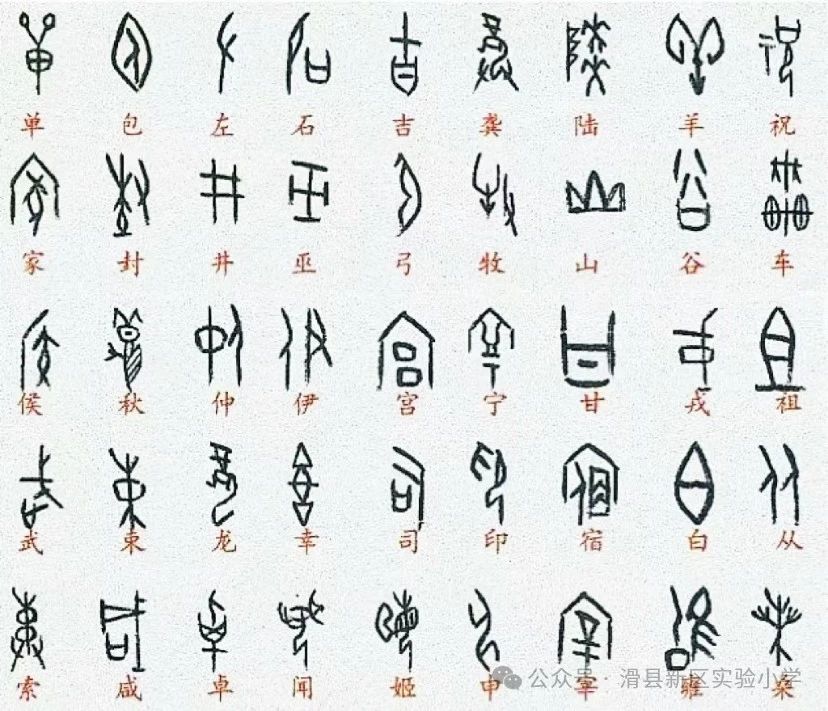 单 包 左 石 吉 龚 陆 羊 祝
家 封 井 巫 弓 牧 山 谷 车
侯 秋 仲 伊 宫 宁 甘 戎 祖
武 束 龙 幸 司 印 宿 白 从
索 咸 卓 闻 姬 申 宰 雍 桑
公众号·滑县新区实验小学